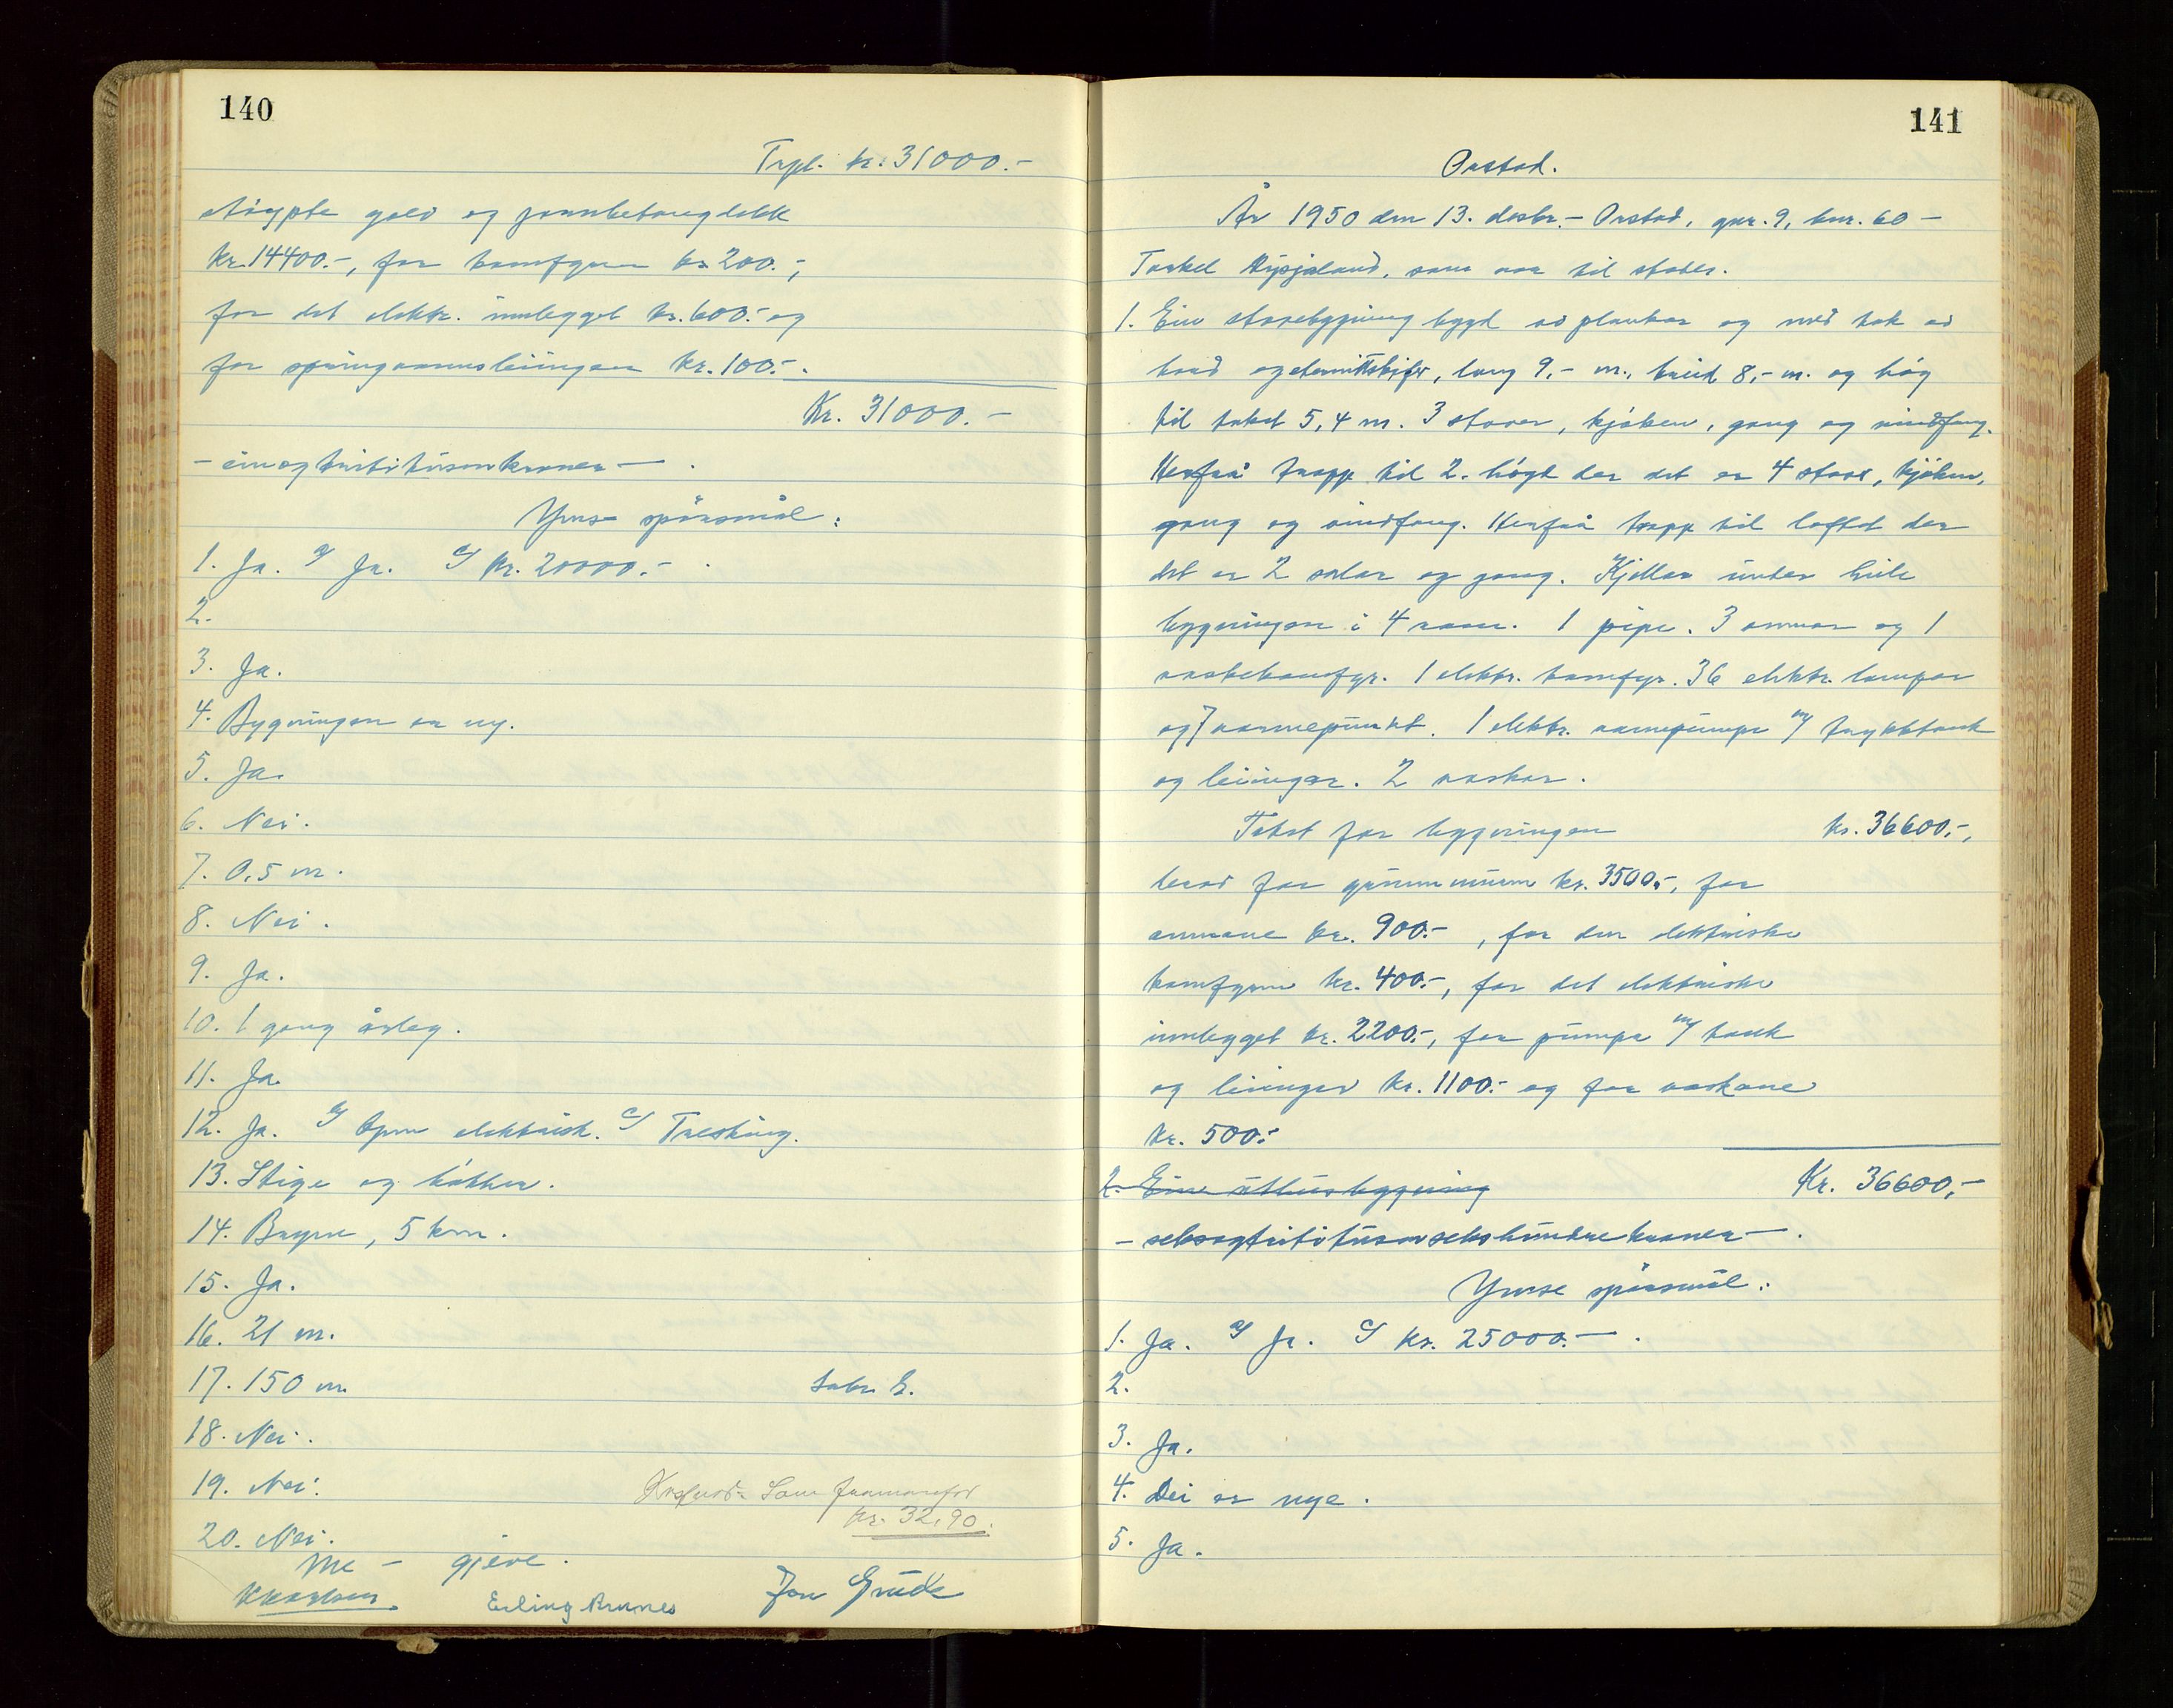 140
Trpl. kr. 31000.-
støypte golv og jarnbetongdekk
kr. 14400.-, for komfyren kr. 200.-,
for det elektr. innlegget kr. 600.- og
for springvannsleiingen kr. 100.-.
Kr. 31000.-
- einogtrittitusenkroner - .
Ymse spörsmål:
1. Ja. a/ Ja. c/ kr. 20000.- .
2.
3. Ja.
4. Bygningen er ny.
5. Ja.
6. Nei.
7. 0,5 m.
8. Nei.
9. Ja.
10. 1 gong årleg.
11. Ja.
12. Ja. a/ Open elektrisk. c/ Tresking.
13. Stige og bötter.
14. Bryne, 5 km.
15. Ja.
16. 21 m.
17. 150 m.
18. Nei.
19. Nei.
20. Nei.
Som framanfor
kr. 32,90.
Me - gjeve.
Erling Brunes Jon Grude
141
Orstad.
År 1950 den 13. desbr. - Orstad, gnr. 9, bnr. 60 -
Torkel som var til stades.
1. Ein stovebygning bygd av plankar og med tak av
bord og eternittskifer, lang 9,- m., breid 8,- m. og høg
til taket 5,4 m. 3 stover, kjøken, gang og vindfang.
Herfrå trapp til 2. høgd der det er 4 stover, kjøken,
gang og vindfang. Herfrå trapp til loftet der
det er 2 salar og gang. Kjellar under heile
bygningen i 4 rom. 1 pipe. 3 omnar og 1
vaskekomfyr. 1 elektr. komfyr. 36 elektr. lampar
og 7 varmepunkt. 1 elektr. vannpumpe m/ trykktank
og leiingar. 2 vaskar.
Takst for bygningen kr. 36600,-,
herav for grunnmuren kr. 3500,-, for
omnane kr. 900.-, for den elektriske
komfyren kr. 400.-, for det elektriske
innlegget kr. 2200.-, for pumpe m/ tank
og leiinger kr. 1100.- og for vaskane
kr. 500.-
2. Ein uthusbygning Kr. 36600,-
- seksogtrittitusensekshundrekroner - .
Ymse spörsmål:
1. Ja. a/ Ja. c/ kr. 25000.- .
2.
3. Ja.
4. Dei er nye.
5. Ja.